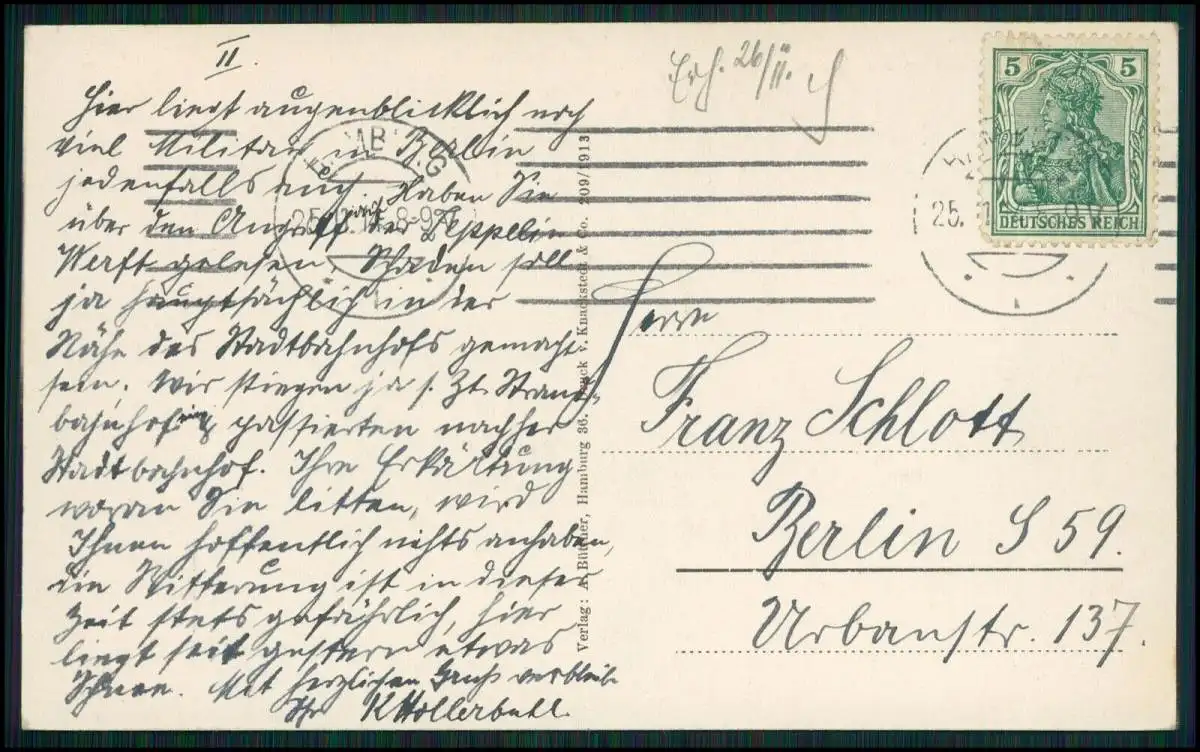 II.
Hier liegt augenblicklich noch
viel Militär in Berlin
jedenfalls auch. Haben Sie
über den Angriff auf der Zeppelin
Werft gelesen, Schaden soll
ja hauptsächlich in der
Nähe des Stadtbahnhofs gemacht
sein. Wir stiegen ja s. Zt. Strand-
bahnhof ein & passierten nachher
Stadtbahnhof. Ihre Erkältung
woran Sie litten, wird
Ihnen hoffentlich nichts anhaben,
die Witterung ist in dieser
Zeit stets gefährlich, hier
liegt seit gestern etwas
Schnee. Mit herzlichem Gruß verbleibe
Ihr K Hollerbuhl.
26/II.
Verlag: A. Büttner, Hamburg 36. Druck v. Knackstedt & Co. 209/1913
HAMBURG
25.
8-9
5 5
DEUTSCHES REICH
25.
Herrn
Franz Schlott
Berlin S 59.
Urbanstr. 137.